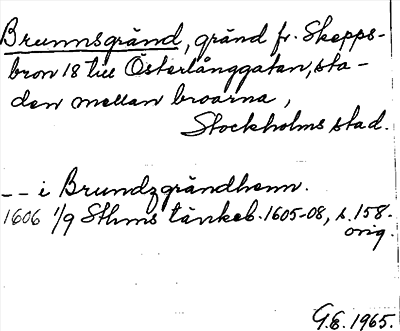 Brunnsgränd, gränd fr. Skepps-
bron 18 till Österlånggatan, sta-
den mellan broarna,
Stockholms stad.
-- i Brundzgrändhenn.
1606 1/9 Sthms tänkeb. 1605-08, s. 158.
orig.
G.E. 1965.